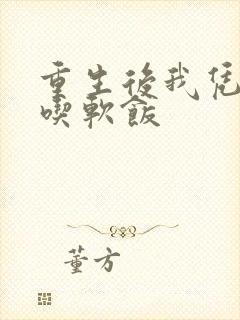 重生後我凭
喫軟飯
董方